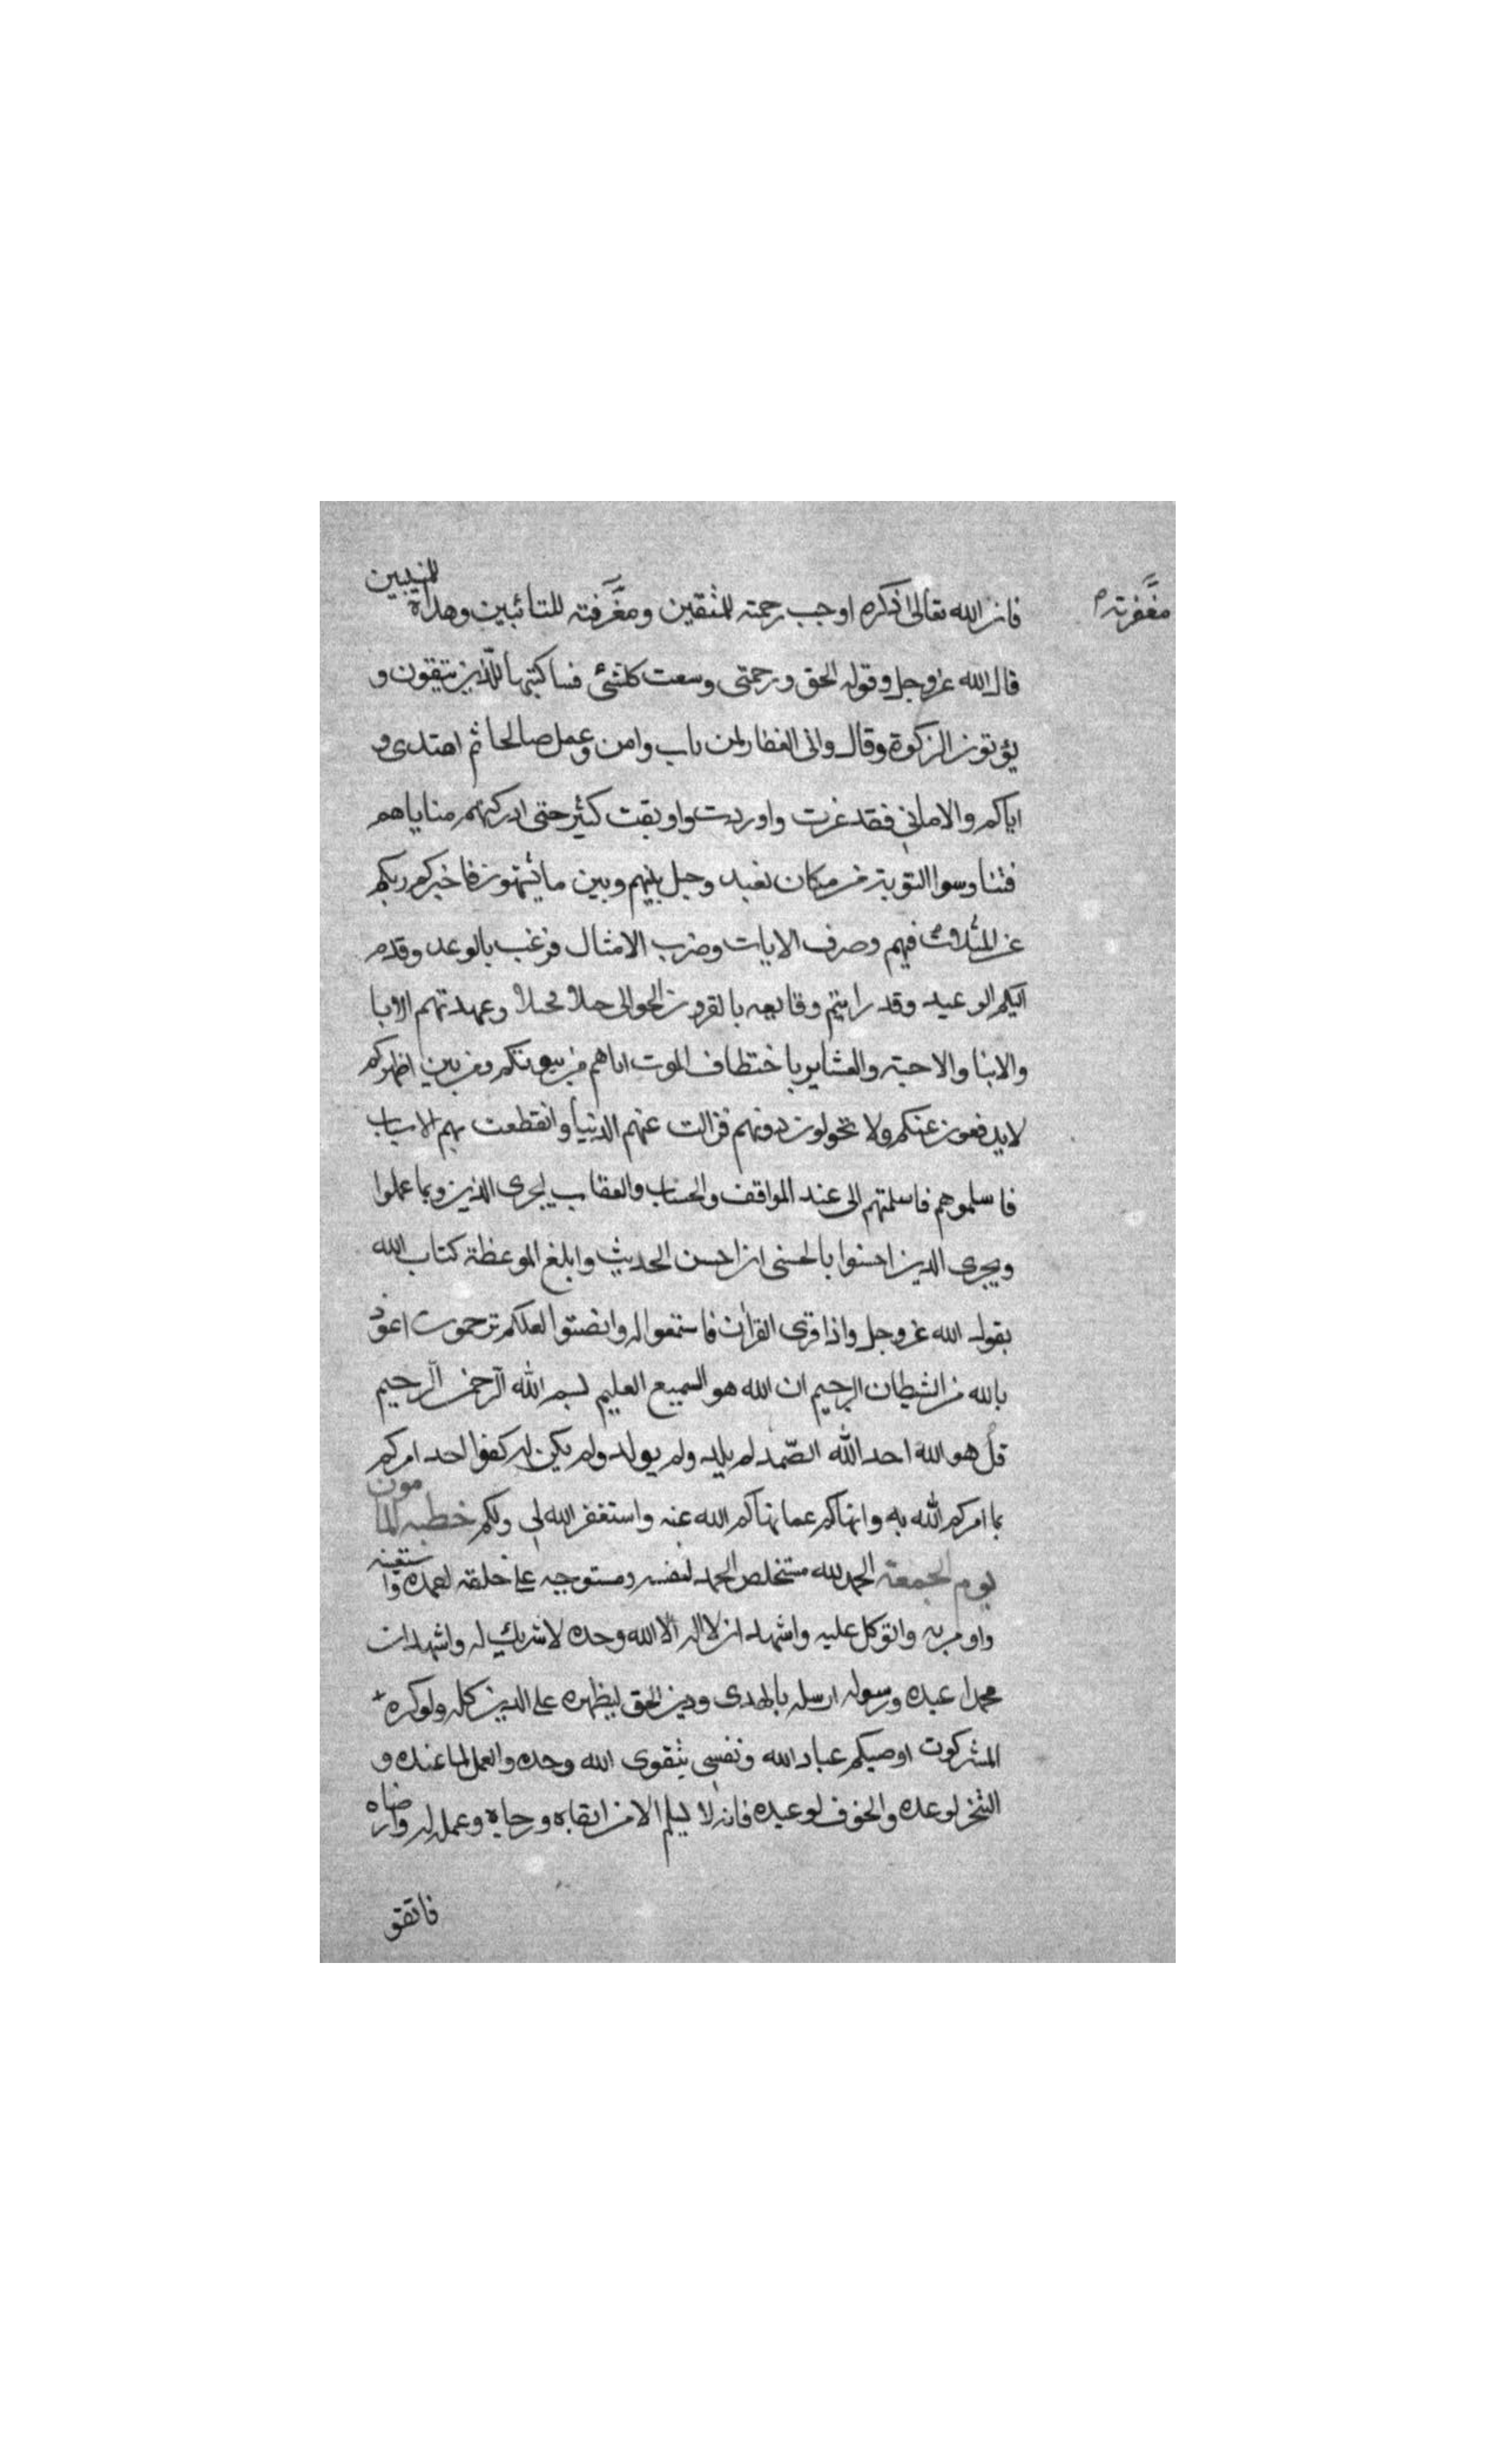 فان الله تعالى ذكره اوجب رحمته للمتقين ومغرفته للتائبين وهداة للمنيبين
مغفرته م
قال الله عز وجل وقوله الحق ورحمتى وسعت كلشئ فساكتبها للذين يتقون و
يؤتون الزكوة وقال وانى الغفار لمن تاب وامن وعمل صالحا ثم اهتدى و
اياكم والامانى فقد غرت واوردت واوبقت كثير حتى ادركتهم مناياهم
فتناوسوا التوبة من مكان بعيد وحيل بينهم وبين ما يشتهون فاخبركم ربكم
عن المثلاث فيهم وصرف الايات وضرب الامثال فرغب بالوعد وقدم
اليكم الوعيد وقد رايتم وقايعه بالقرون الخوالى جيلا فجيلا وعهدتهم الابا
والابنا والاحبة والعشاير باختطاف الموت اياهم من بيوتكم ومن بين اظهركم
لا يدفعون عنكم ولا تحولون دونهم فزالت عنهم الدنيا وانقطعت بهم الاسباب
فاسلموهم فاسلمتهم الى عند المواقف والحساب والعقاب ليجرى الذين وبما عملوا
ويجرى الذين احسنوا بالحسنى ان احسن الحديث وابلغ الموعظة كتاب الله
بقول الله عز وجل واذا قرى القران فاستمعوا له وانصتوا لعلكم ترحمون اعوذ
بالله من الشيطان الرجيم ان الله هو السميع العليم بسم الله الرحمن الرحيم
قل هو الله احد الله الصمد لم يلد ولم يولد ولم يكن له كفوا احد امركم
بما امركم الله به وانهاكم عما نهاكم الله عنه واستغفر الله لى ولكم خطبه المامون
يوم الجمعة الحمد لله مستخلص الحمد لنفسه ومستوجبه على خلقه لحمده واستعينه
واومن به واتوكل عليه واشهد ان لا اله الا الله وحده لا شريك له واشهد ان
محمدا عبده ورسوله ارسله بالهدى ودين الحق ليظهره على الدين كله ولو كره
المشركون اوصيكم عباد الله ونفسى بتقوى الله وحده والعمل لما عنده و
التنجز لوعده والخوف لوعيده فانه لا يسلم الا من اتقاه ورجاه وعمل له وارضاه
فاتقو